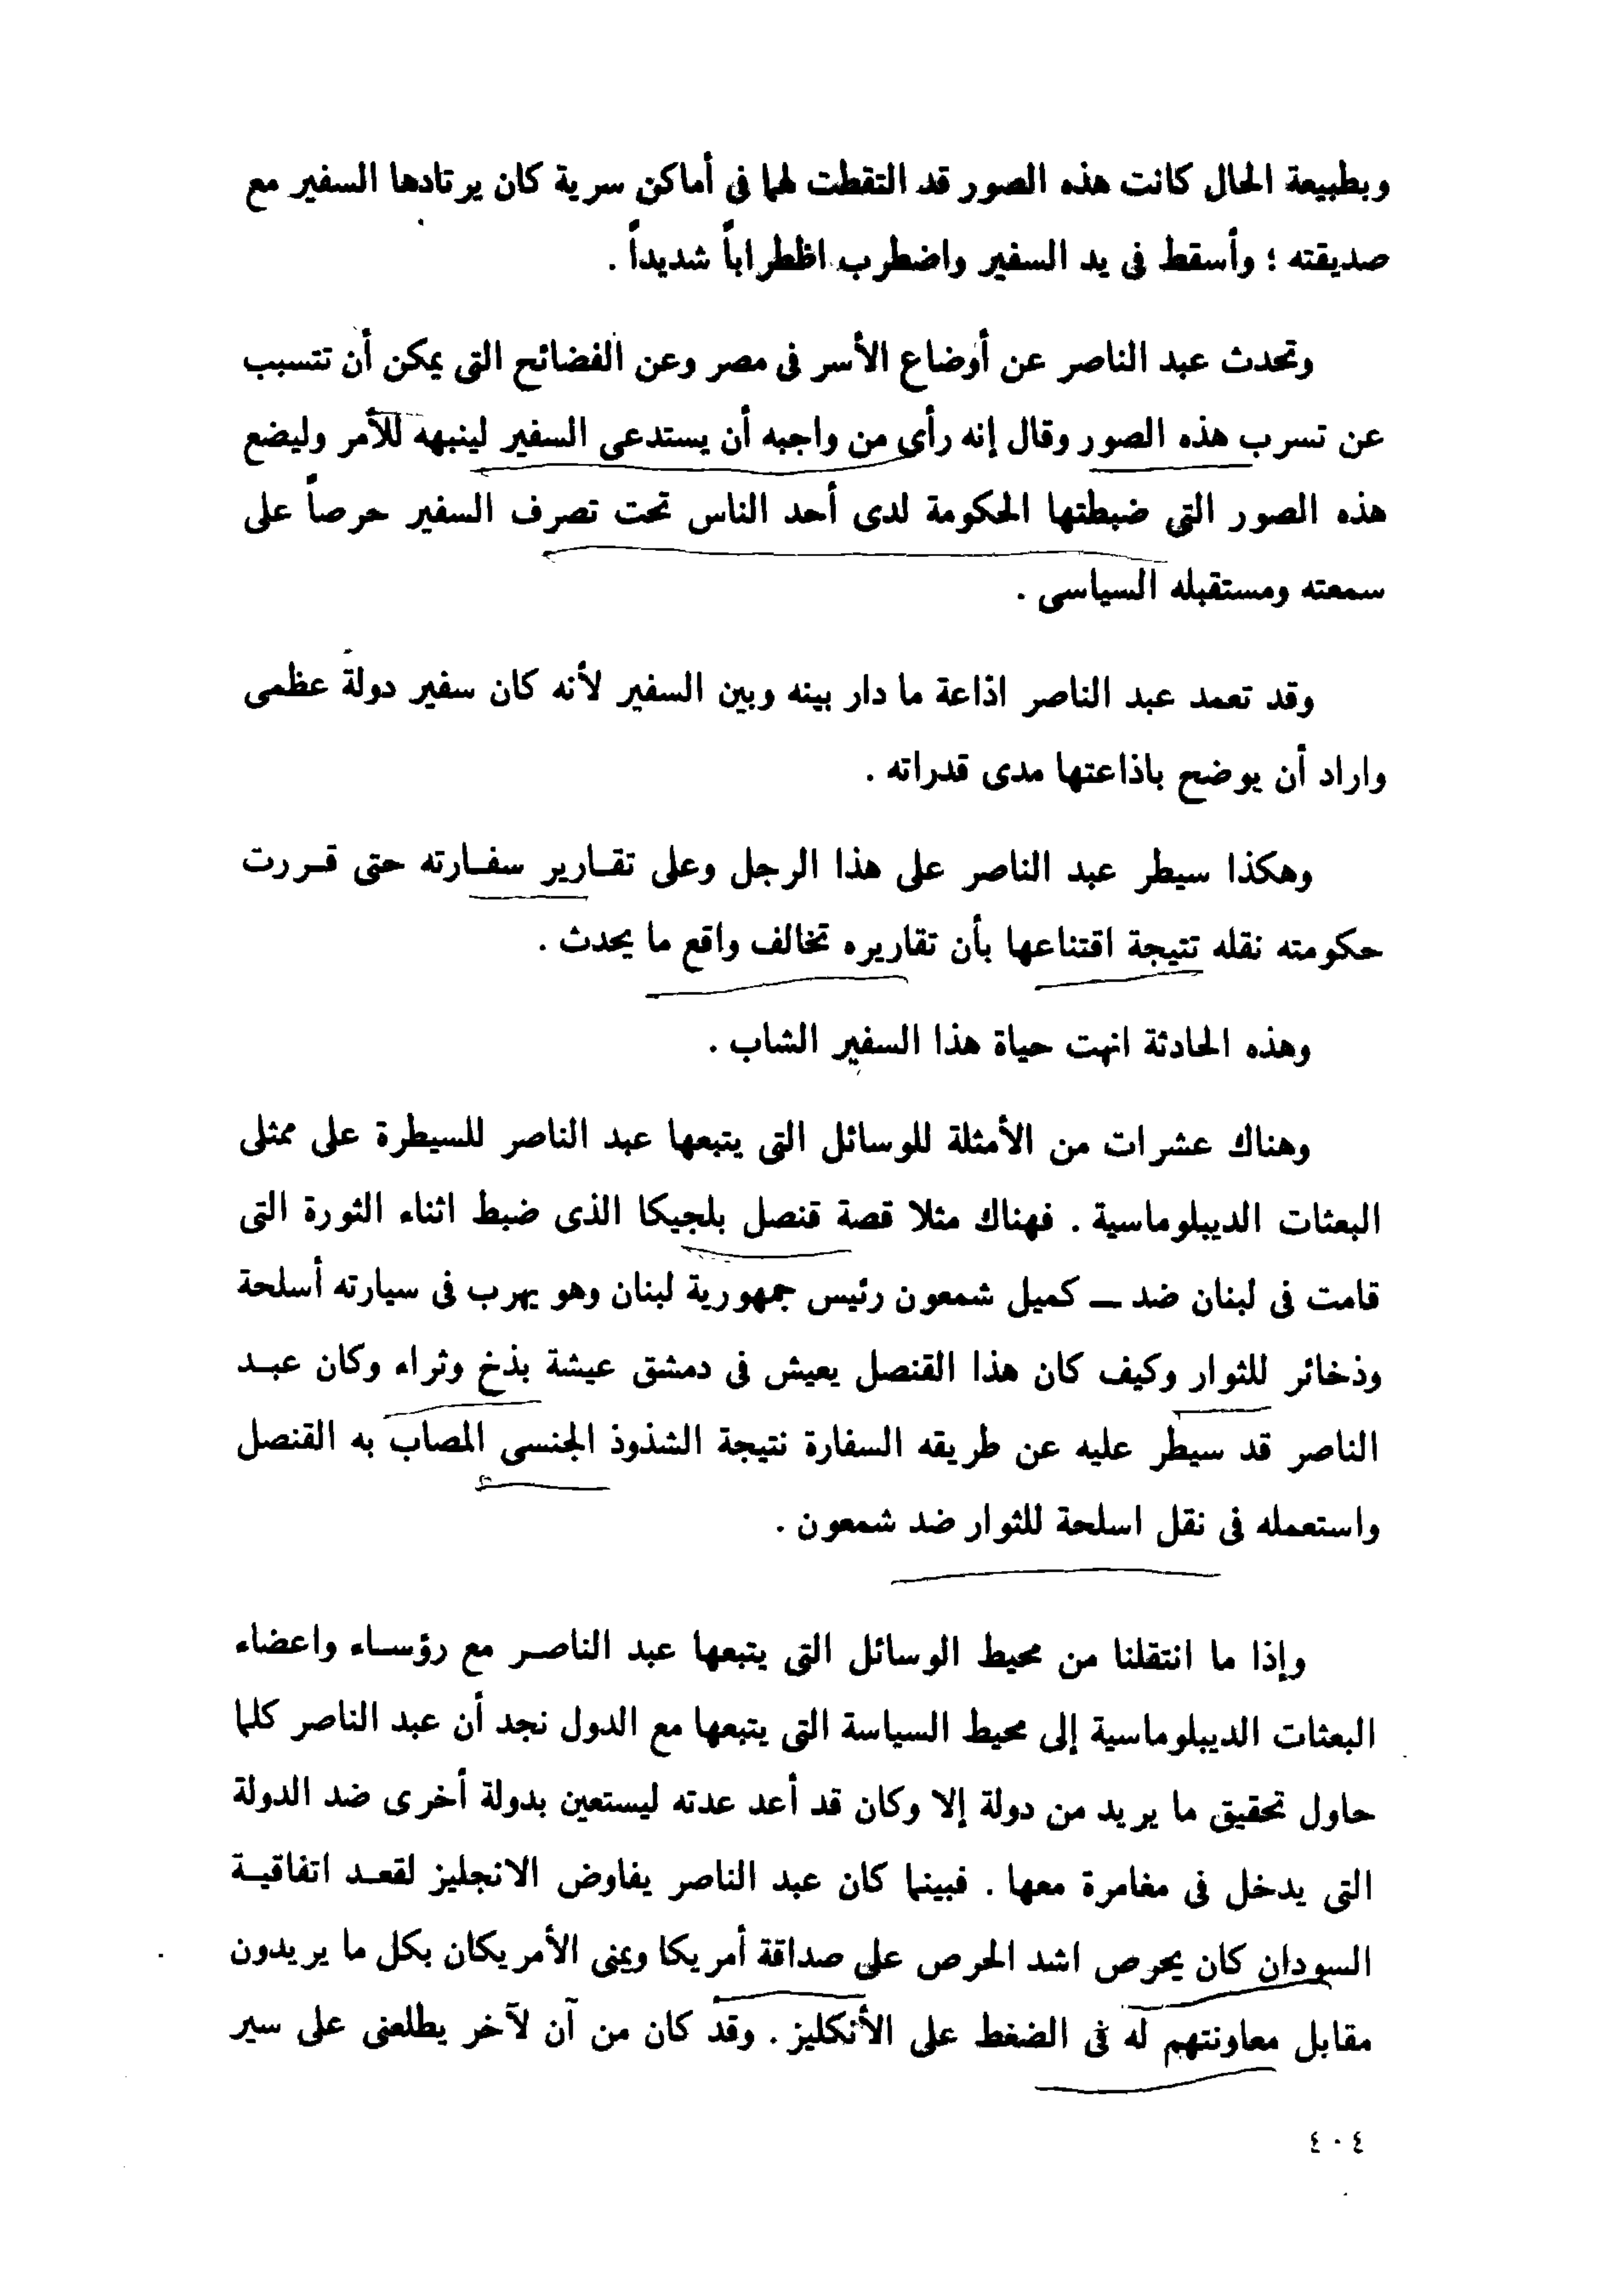 وبطبيعة الحال كانت هذه الصور قد التقطت لهما فى أماكن سرية كان يرتادها السفير مع
صديقته ؛ وأسقط فى يد السفير واضطرب اظطراباً شديداً .
وتحدث عبد الناصر عن أوضاع الأسر فى مصر وعن الفضائح التى يمكن أن تتسبب
عن تسرب هذه الصور وقال إنه رأى من واجبه أن يستدعى السفير لينبهه للأمر وليضع
هذه الصور التي ضبطتها الحكومة لدى أحد الناس تحت تصرف السفير حرصاً على
سمعته ومستقبله السياسى .
وقد تعمد عبد الناصر اذاعة ما دار بينه وبين السفير لأنه كان سفير دولة عظمى
واراد أن يوضح باذاعتها مدى قدراته .
وهكذا سيطر عبد الناصر على هذا الرجل وعلى تقارير سفارته حتى قررت
حكومته نقله تتيجة اقتناعها بأن تقاريره تخالف واقع ما يحدث .
وهذه الحادثة انهت حياة هذا السفير الشاب .
وهناك عشرات من الأمثلة للوسائل التى يتبعها عبد الناصر للسيطرة على ممثلى
البعثات الديبلوماسية . فهناك مثلا قصة قنصل بلجيكا الذى ضبط اثناء الثورة التى
قامت فى لبنان ضد — كميل شمعون رئيس جمهورية لبنان وهو يهرب فى سيارته أسلحة
وذخائر للثوار وكيف كان هذا القنصل يعيش فى دمشق عيشة بذخ وثراء وكان عبد
الناصر قد سيطر عليه عن طريقه السفارة نتيجة الشذوذ الجنسى المصاب به القنصل
واستعمله فى نقل اسلحة للثوار ضد شمعون .
وإذا ما انتقلنا من محيط الوسائل التى يتبعها عبد الناصر مع رؤساء واعضاء
البعثات الديبلوماسية إلى محيط السياسة التى يتبعها مع الدول نجد أن عبد الناصر كلما
حاول تحقيق ما يريد من دولة إلا وكان قد أعد عدته ليستعين بدولة أخرى ضد الدولة
التى يدخل فى مغامرة معها . فبينما كان عبد الناصر يفاوض الانجليز لقعد اتفاقية
السودان كان يحرص اشد الحرص على صداقة أمريكا ويمنى الأمريكان بكل ما يريدون
مقابل معاونتهم له فى الضغط على الأنكليز . وقد كان من آن لآخر يطلعنى على سير
٤٠٤